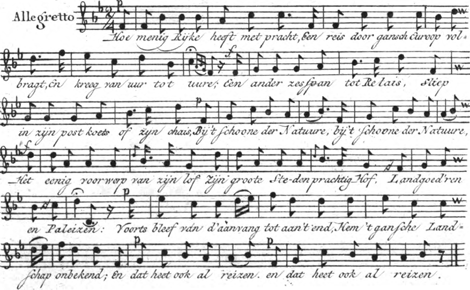 Allegretto
Hoe menig Ryke heeft met pracht, Een reis door gansch Euroop vol-
bragt, En kreeg van uur tot uure; Een ander zesspan tot Relais, Sliep
in zijn post koets of zyn chais, Bij't Schoone der Natuure, bij't schoone der Natuure,
Het eenig voorwerp van zijn lof Zijn groote Steden prachtig Hof, Landgoed'ren
en Paleizen: Voorts bleef van d'aanvang tot aan't end, Hem 't gansche Land-
schap onbekend; En dat heet ook al reizen. en dat heet ook al reizen.